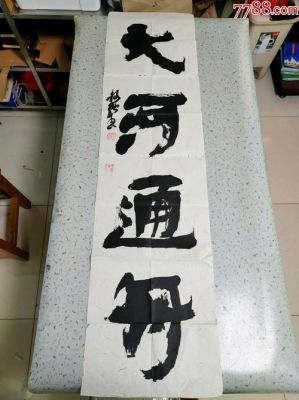 7788.com
大河通舟